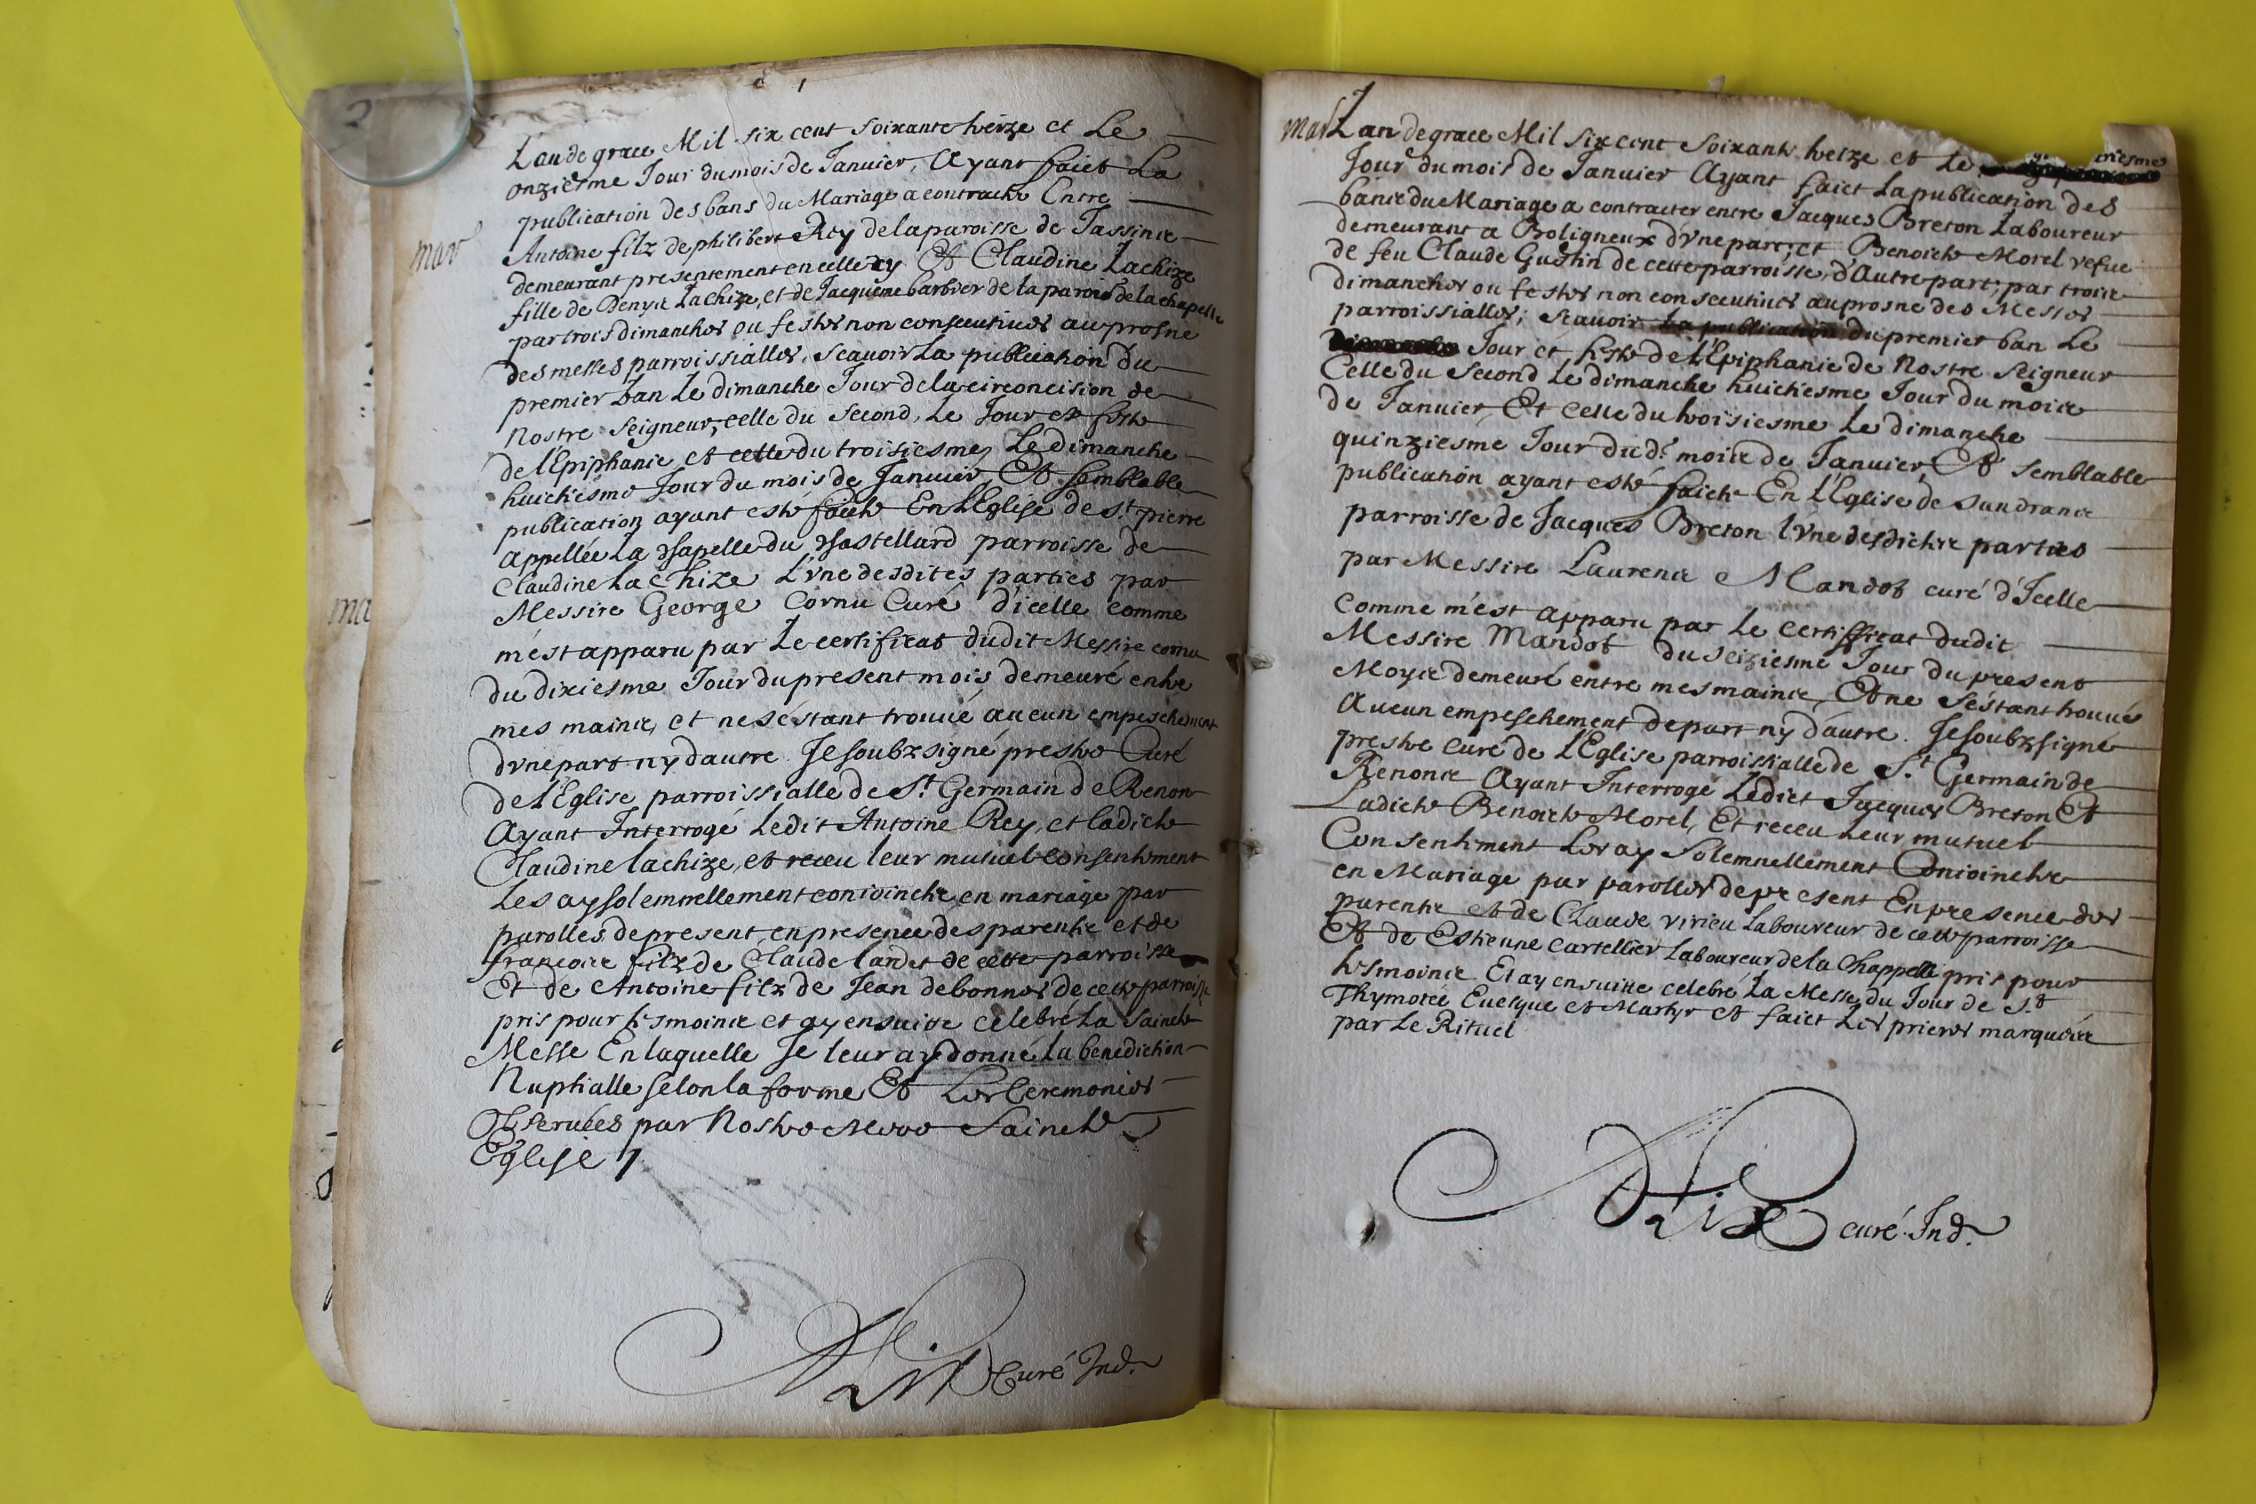 2
Lan de grace Mil six cent soixante treize et Le
onziesme Jour du mois de Januier, Ayant faict La
publication des bans du Mariage a contracter Entre
mar
Antoine filz de philibert Rey de la paroisse de Tassins
demeurant presentement en celle cy Et Claudine Lachize
fille de Denys Lachize, et de Jacqueme barbier de la parois de la chapelle
par trois dimanches ou festes non consecutiues au prosne
des messes parroissialles, scauoir La publication du
premier ban Le dimanche Jour de la circoncision de
Nostre Seigneur, celle du second, Le Jour et feste
de l'Epiphanie et celle du troisiesme Le dimanche
huictiesme Jour du mois de Januier Et semblable
publication ayant esté faicte En L'Eglise de St. pierre
appellée La chapelle du chastellard parroisse de
Claudine Lachize L'vne desdites parties par
Messire George Cornu Curé d'icelle comme
m'est apparu par Le certificat dudit Messire cornu
du dixiesme Jour du present mois demeuré entre
mes mains, et ne s'estant trouué aucun empeschement
d'vne part ny d'autre Je soubzsigné prestre Curé
de l'Eglise parroissialle de St. Germain de Renon
Ayant Interrogé Ledit Antoine Rey, et ladicte
Claudine lachize, et receu leur mutuel consentement
Les ay solemnellement conioincts en mariage par
parolles de present, en presence des parents et de
francois filz de Claude landet de cette parroisse
Et de Antoine filz de Jean debonnes de cette parroisse
pris pour tesmoins et ay ensuitte celebré La saincte
Messe En laquelle Je leur ay donné la benediction
Nuptialle selon la forme Et Les Ceremonies
Obseruées par Nostre Mere Saincte
Eglise
curé Ind.
mar
Lan de grace Mil six cent soixante treize et Le
Jour du mois de Januier Ayant faict La publication des
bans du Mariage a contracter entre Jacques Breton Laboureur
demeurant a Boligneux d'vne part, et Benoicte Morel vefue
de feu Claude Gustin de cette parroisse, d'Autre part; par trois
dimanches ou festes non consecutiues au prosne des Messes
parroissialles; scauoir La publication du premier ban Le
Jour et feste de L'Epiphanie de Nostre Seigneur
Celle du second Le dimanche huictiesme Jour du mois
de Januier, Et celle du troisiesme Le dimanche
quinziesme Jour dud. mois de Januier, Et semblable
publication ayant esté faicte En L'Eglise de Sandrans
parroisse de Jacques Breton l'vne desdictes parties
par Messire Laurens Mandot curé d'Icelle
comme m'est apparu par Le Certifficat dudit
Messire Mandot du seiziesme Jour du present
Moys demeuré entre mes mains, Et ne s'estant trouué
Aucun empeschement de part ny d'autre. Je soubzsigné
prestre curé de L'Eglise parroissialle de St. Germain de
Renons Ayant Interrogé Ledict Jacques Breton Et
Ladicte Benoicte Morel, Et receu Leur mutuel
Consentiment Les ay solemnellement Conioincts
en Mariage par parolles de present En presence des
parents et de Claude virieu Laboureur de cette parroisse
Et de Estienne cartellier Laboureur de la Chappelle pris pour
tesmoins Et ay ensuitte celebré La Messe du Jour de St
Thymotée Euesque et Martyr et faict Les prieres marquées
par Le Rituel
curé Ind.